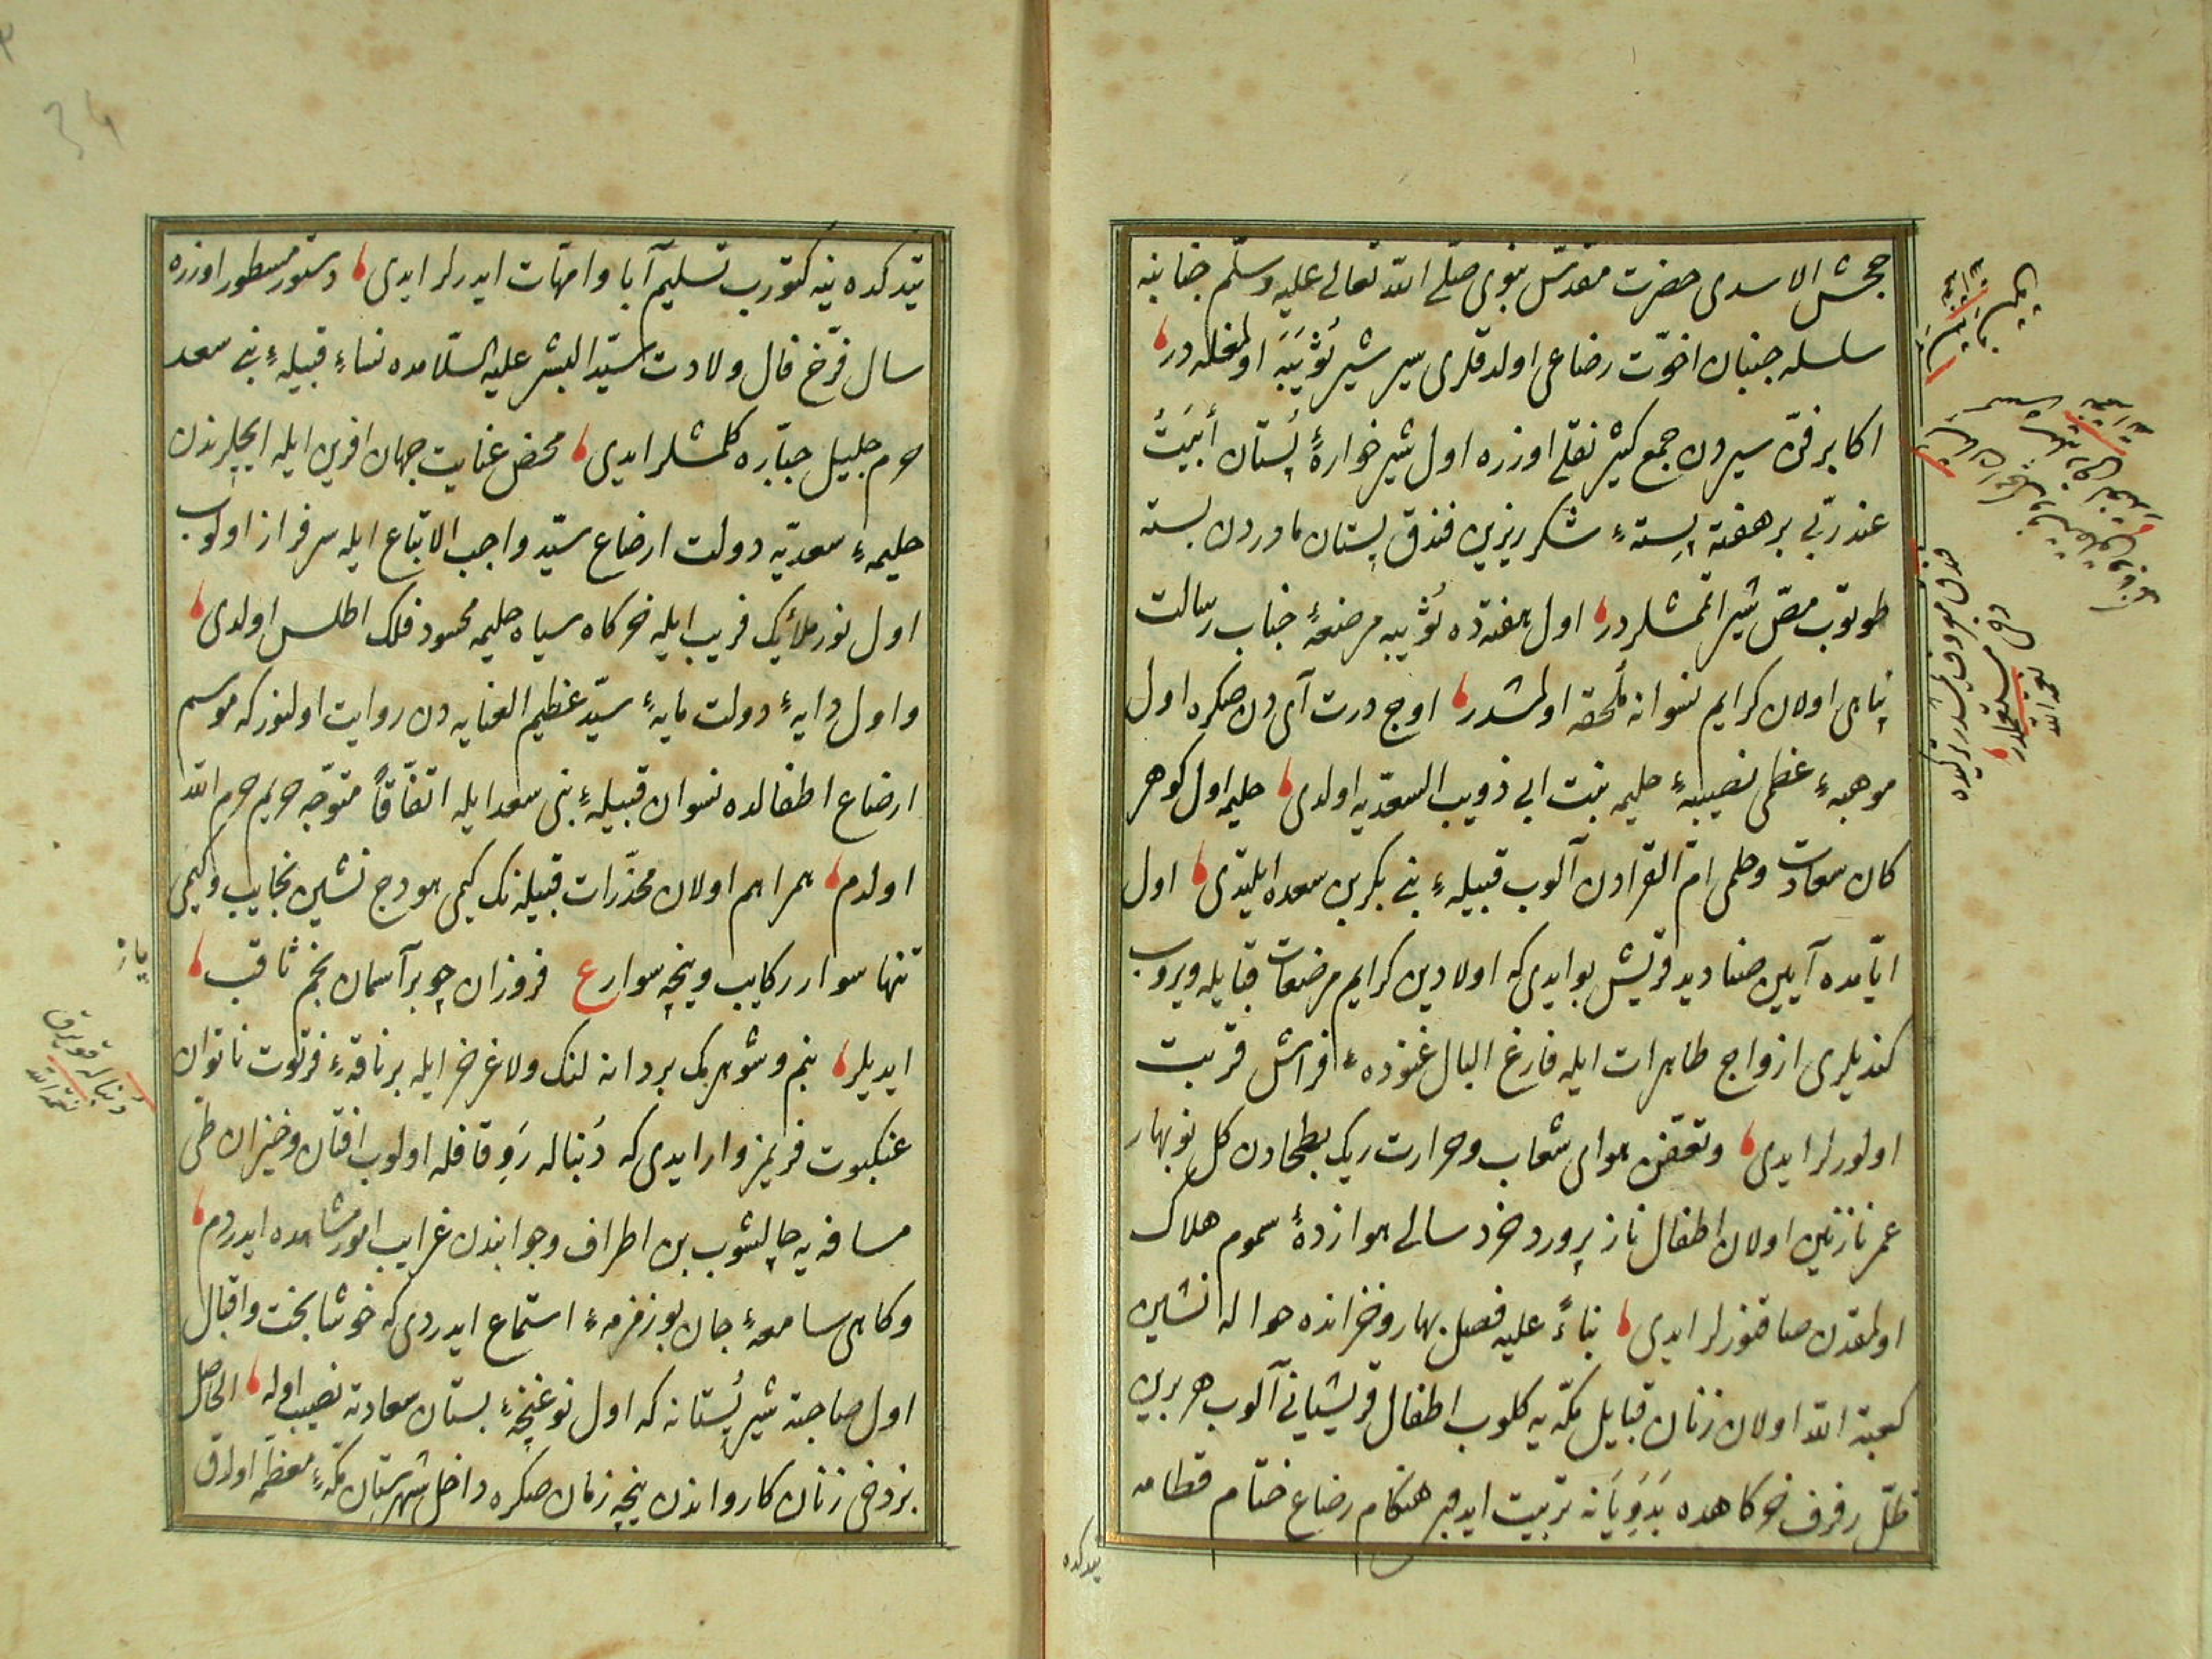 جحش الاسدی حضرت مقدّس نبوی صلّی الله تعالی علیه وسلّم جنابنه
سلسله جنبان اخوّت رضاعی اولدقلری سیر شیر ثُوَیبَه اولمغله در
اکابر فنّ سیردن جمع کثیر نقلی اوزره اول شیرخوارهٔ پستان أَبیتُ
عند ربّی بر هفته پستهٔ شکر ریزین فندق پستان مادردن بسته
طوتوب مصّ شیر اتمشلردر اول هفته ده ثُویبه مرضعهٔ جناب رسالت
پناهی اولان کرایم نسوانه مُلحقه اولمشدر اوج درت آی دن صکره اول
موهبهٔ عظمی نصیبهٔ حلیمه بنت ابی ذویب السعدیه اولدی حلیمه اول کوهر
کان سعادت و حلمی امّ القرادن آلوب قبیلهٔ بنی بکر بن سعده ایلتدی اول
ایّامده آیین صنادید قریش بو ایدی که اولادین کرایم مرضعات قبایله ویروب
کندیلری ازواج طاهرات ایله فارغ البال غنودهٔ فراش قربت
اولورلر ایدی وتعفن هوای شعاب وحرارت ریک بطحادن کل نوبهار
عمر نازنین اولان اطفال ناز پرورد خرد سالی هوا زدهٔ سموم هلاک
اولمقدن صاقنورلر ایدی بناءً علیه فصل بهار وخزانده حواله نشین
کعبة الله اولان زنان قبایل مکّه یه کلوب اطفال قریشیانی آلوب هر برین
ظلّ رفرف خرکاهده بَدَوِیَانه تربیت ایدوب هنکام رضاع ختام فطامه
یتدکده
یتدکده ینه کتورب تسلیم آبا وامّهات ایدرلر ایدی دستور مسطور اوزره
سال فرّخ فال ولادت سیّد البشر علیه السّلامده نساءِ قبیلهٔ بنی سعد
حرم جلیل جبّاره کلمشلر ایدی محض عنایت جهان افرین ایله ایچلرندن
حلیمهٔ سعدیّه دولت ارضاع سیّد واجب الاتباع ایله سرفراز اولوب
اول نور ملائک فریب ایله خرکاه سیاه حلیمه محسود فلک اطلس اولدی
واول دایهٔ دولت مایهٔ سیّد عظیم العنایه دن روایت اولنور که موسم
ارضاع اطفالده نسوان قبیلهٔ بنی سعد ایله اتفاقاً متوجّه حریم حرم الله
اولدم همراهم اولان مخدّرات قبیله نک کیمی هودج نشین نجایب وکیمی
تنها سوار رکایب ونیجه سوار ع فروزان چو بر آسمان نجم ثاقب
ایدیلر بنم وشوهرمک بر دانه لنک ولاغر خر ایله بر ناقهٔ فرتوت ناتوان
عنکبوت فریمز وار ایدی که دُنباله رَوِ قافله اولوب افتان وخیزان طی
مسافه یه چالشوب بن اطراف وجوانبدن غرایب امور مشاهده ایدردم
وکاهی سامعهٔ جان بو زمزمهٔ استماع ایدردی که خوشا بخت واقبال
اول صاحبة شیر پُستانه که اول نو غنچهٔ بستان سعادته نصیب اوله الحاصل
بز دخی زنان کارواندن نیجه زمان صکره داخل شهرستان مکّهٔ معظّمه اولدق
دنباله قویرق
نعمة الله